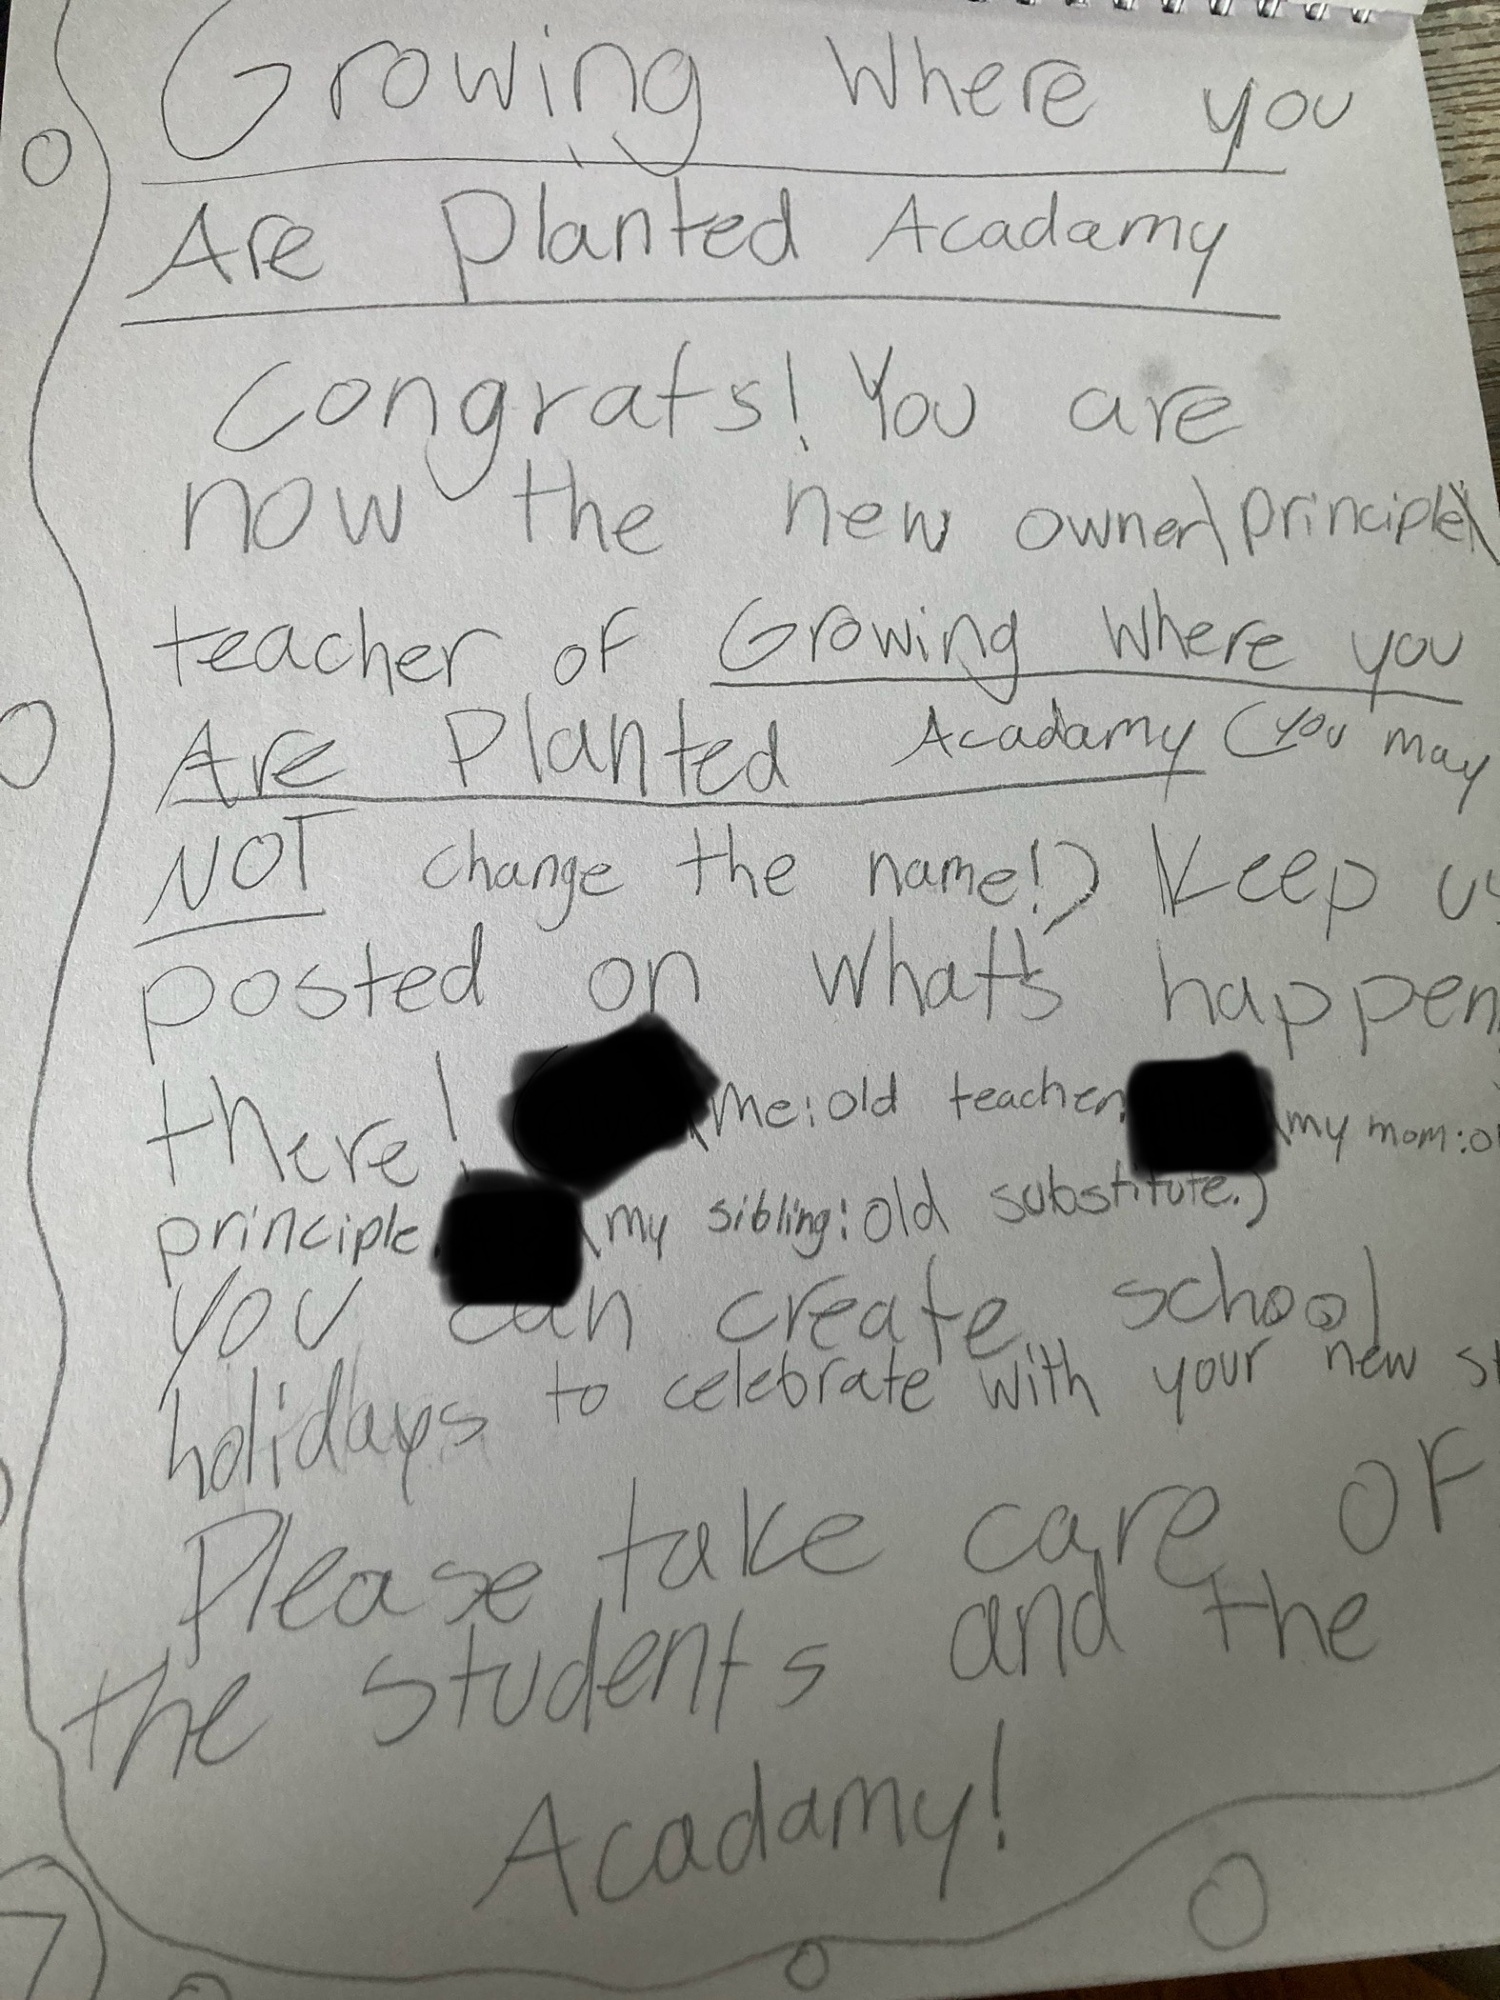 Growing Where you
Are Planted Acadamy
Congrats! You are
now the new owner\principle\
teacher of Growing Where you
Are Planted Acadamy (you may
NOT change the name!) Keep us
posted on what's happen
there! (me:old teacher. (my mom:o
principle. (my sibling:old substitute.)
you can create school
holidays to celebrate with your new st
Please take care of
the students and the
Acadamy!